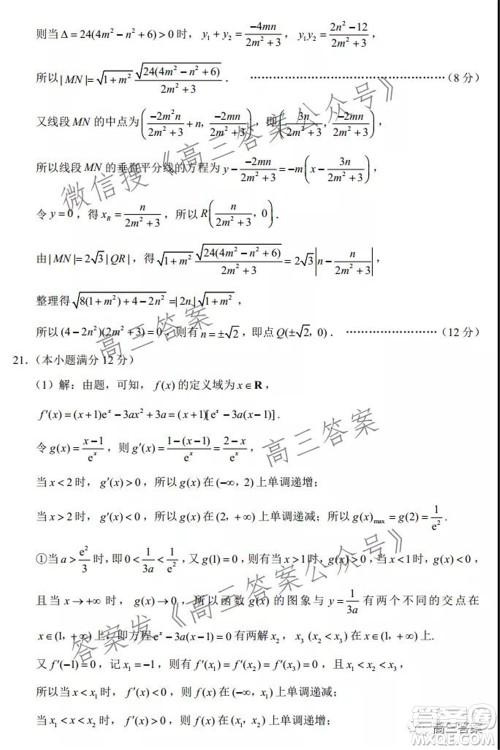 则当 Δ = 24(4m² − n² + 6) > 0 时， y₁ + y₂ = −4mn/(2m² + 3)， y₁y₂ = (2n² − 12)/(2m² + 3)，
所以 |MN| = √(1 + m²) √(24(4m² − n² + 6))/(2m² + 3)． ……………………………………（8 分）
又线段 MN 的中点为 (−2m²n/(2m² + 3) + n, −2mn/(2m² + 3))，即 (3n/(2m² + 3), −2mn/(2m² + 3))，
所以线段 MN 的垂直平分线的方程为 y − −2mn/(2m² + 3) = −m(x − 3n/(2m² + 3))，
令 y = 0，得 x_R = n/(2m² + 3)，所以 R(n/(2m² + 3), 0)．
由 |MN| = 2√3 |QR|，得 √(1 + m²) √(24(4m² − n² + 6))/(2m² + 3) = 2√3 |n − n/(2m² + 3)|，
整理得 √(8(1 + m²) + 4 − 2n²) = |2n| √(1 + m²)，
所以 (4 − 2n²)(2m² + 3) = 0，则有 n = ±√2，即点 Q(±√2, 0)． ……………………（12 分）
21．（本小题满分 12 分）
（1）解：由题，可知， f(x) 的定义域为 x ∈ R，
f′(x) = (x + 1)eˣ − 3ax² + 3a = (x + 1)[eˣ − 3a(x − 1)]．
令 g(x) = (x − 1)/eˣ，则 g′(x) = (1 − (x − 1))/eˣ = (2 − x)/eˣ，
当 x < 2 时， g′(x) > 0，所以 g(x) 在 (−∞, 2) 上单调递增；
当 x > 2 时， g′(x) < 0，所以 g(x) 在 (2, +∞) 上单调递减；所以 g(x)max = g(2) = 1/e²．
①当 a > e²/3 时，即 0 < 1/3a < 1/e²，又 g(1) = 0，则当 x > 1 时，有 g(x) > 0，当 x < 1 时， g(x) < 0，
且当 x → +∞ 时， g(x) → 0，所以函数 g(x) 的图象与 y = 1/3a 有两个不同的交点在
x ∈ (1, +∞) 上，即方程 eˣ − 3a(x − 1) = 0 有两解 x₂， x₃ (x₂ < x₃) 在 x ∈ (1, +∞) 上．
又 f′(−1) = 0，记 x₁ = −1，则有 f′(x₁) = f′(x₂) = f′(x₃) = 0，
所以当 x < x₁ 时， f′(x) < 0，所以 f(x) 单调递减；
当 x₁ < x < x₂ 时， f′(x) > 0，所以 f(x) 单调递增；
微信搜《高三答案公众号》
高三答案
高三答案
答案发《高三答案公众号》
高三答案